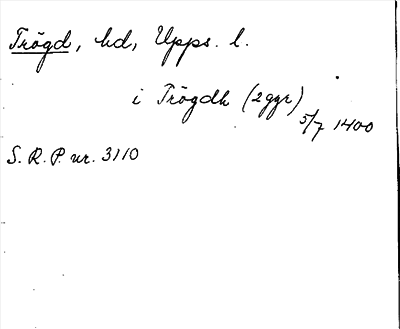 Trögd, hd, Upps. l.
i Trögdh (2ggr)
5/7 1400
S. R. P. nr. 3110